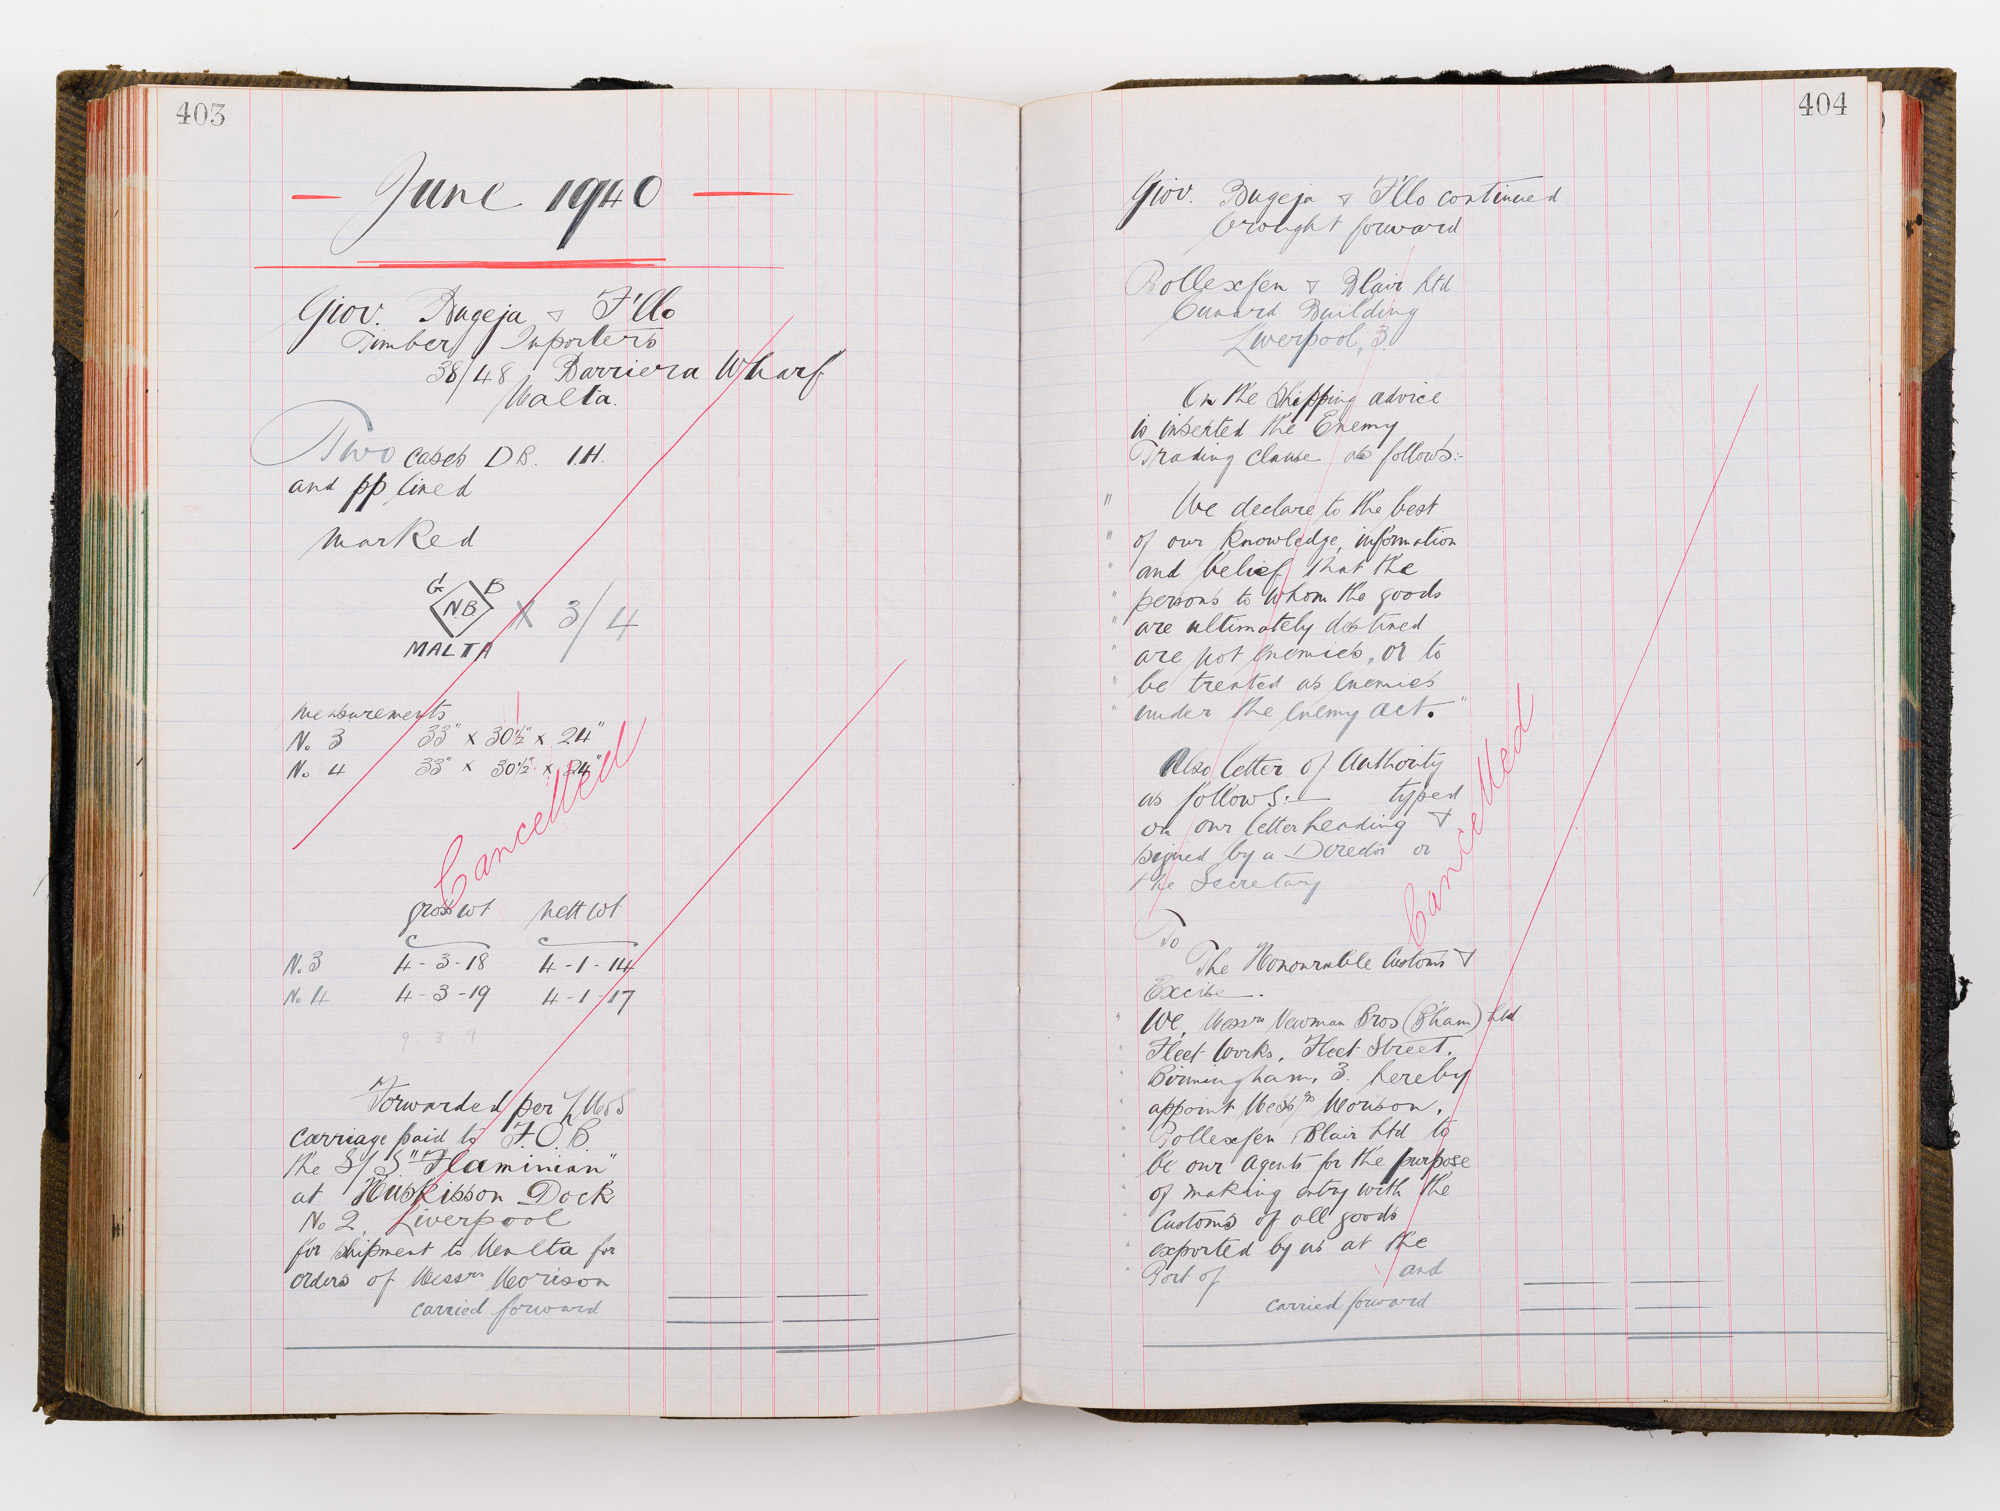 403
June 1940
Giov. Bugeja & F'llo
Timber Importers
38/48, Barriera Wharf
Malta.
Two cases DB. 1H.
and pp lined
marked
G B
NB X 3/4
MALTA
measurements
No. 3 33" x 30½" x 24"
No. 4 33" x 30½" x 24"
Cancelled
gross wt nett wt
No. 3 4-3-18 4-1-14
No. 4 4-3-19 4-1-17
9 3 9
Forwarded per LMS
carriage paid to F.O.B.
the S/S "Flaminian"
at Huskisson Dock
No 2, Liverpool
for shipment to Malta for
orders of Messrs Morison
carried forward
404
Giov. Bugeja & F'llo continued
brought forward
Pollexfen & Blair Ltd
Cunard Building
Liverpool, 3.
On the shipping advice
is inserted the Enemy
Trading clause as follows:-
" We declare to the best
" of our knowledge, information
" and belief that the
" persons to whom the goods
" are ultimately destined
" are not enemies, or to
" be treated as enemies
" under the enemy act. "
Also letter of Authority
as follows:— typed
on our letterheading &
signed by a Director or
the Secretary
Cancelled
To
The Honourable Customs &
Excise.
" We, Messrs Newman Bros (B'ham) Ltd
" Fleet Works, Fleet Street,
" Birmingham, 3. hereby
" appoint Messrs Morison,
" Pollexfen & Blair Ltd to
" be our Agents for the purpose
" of making entry with the
" Customs of all goods
" exported by us at the
" Port of and
carried forward